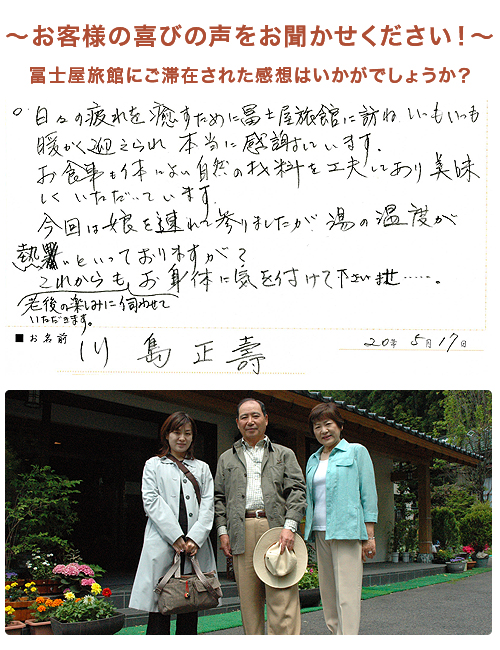 ～お客様の喜びの声をお聞かせください！～
冨士屋旅館にご滞在された感想はいかがでしょうか？
○ 日々の疲れを癒すために冨士屋旅館に訪ねいつもいつも
暖かく迎えられ本当に感謝しています。
お食事も体によい自然の材料を工夫してあり美味
しくいただいています。
今回は娘を連れて参りましたが湯の温度が
熱いといっておりますが？
これからもお身体に気を付けて下さいませ……。
老後の楽しみに伺わせて
いただきます。
■お名前 川島正壽 20年5月17日